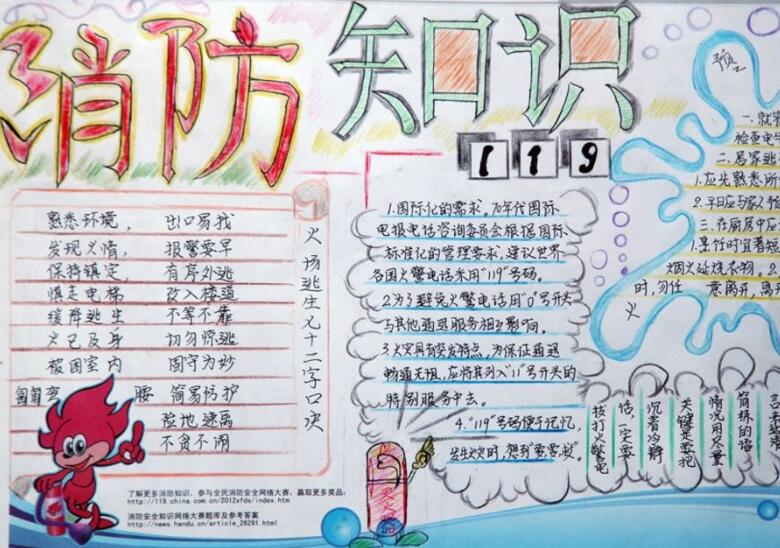 消防知识
119
火场逃生九十二字口决
熟悉环境，出口易找
发现火情，报警要早
保持镇定，有序外逃
慎走电梯 改入楼道
缓降逃生 不等不靠
火已及身 切勿惊逃
被困室内 固守为妙
匍匐弯腰 简易防护
险地速离
不贪不闹
了解更多消防知识，参与全民消防安全网络大赛，赢取更多奖品：
http://119.china.com.cn/2012xfds/index.htm
消防安全知识网络大赛题库及参考答案
http://news.handu.cn/article_26291.html
1.国际化的需求。70年代国际
电报电话咨询委员会根据国际
标准化的管理要求，建议世界
各国火警电话采用"119"号码。
2.为了避免火警电话用"0"号开头
与其他通迅服务相互影响。
3.火灾具有突发特点，为保证通迅
畅通无阻，应将其列入"11"号开头的
特别服务中去。
4."119"号码便于记忆，
发生火灾时，想到"要要救"。
灭火
一、就
检查电
二、居家逃
1.应先熟悉所
2.平日应与家人
三、在厨房中应
1.烹饪时宜着短
烟火延烧衣物。2
时，勿任意离开，离
火
拨打火警电
话，一定要
沉着冷静
关键是要把
情况用尽量
简练的语
言